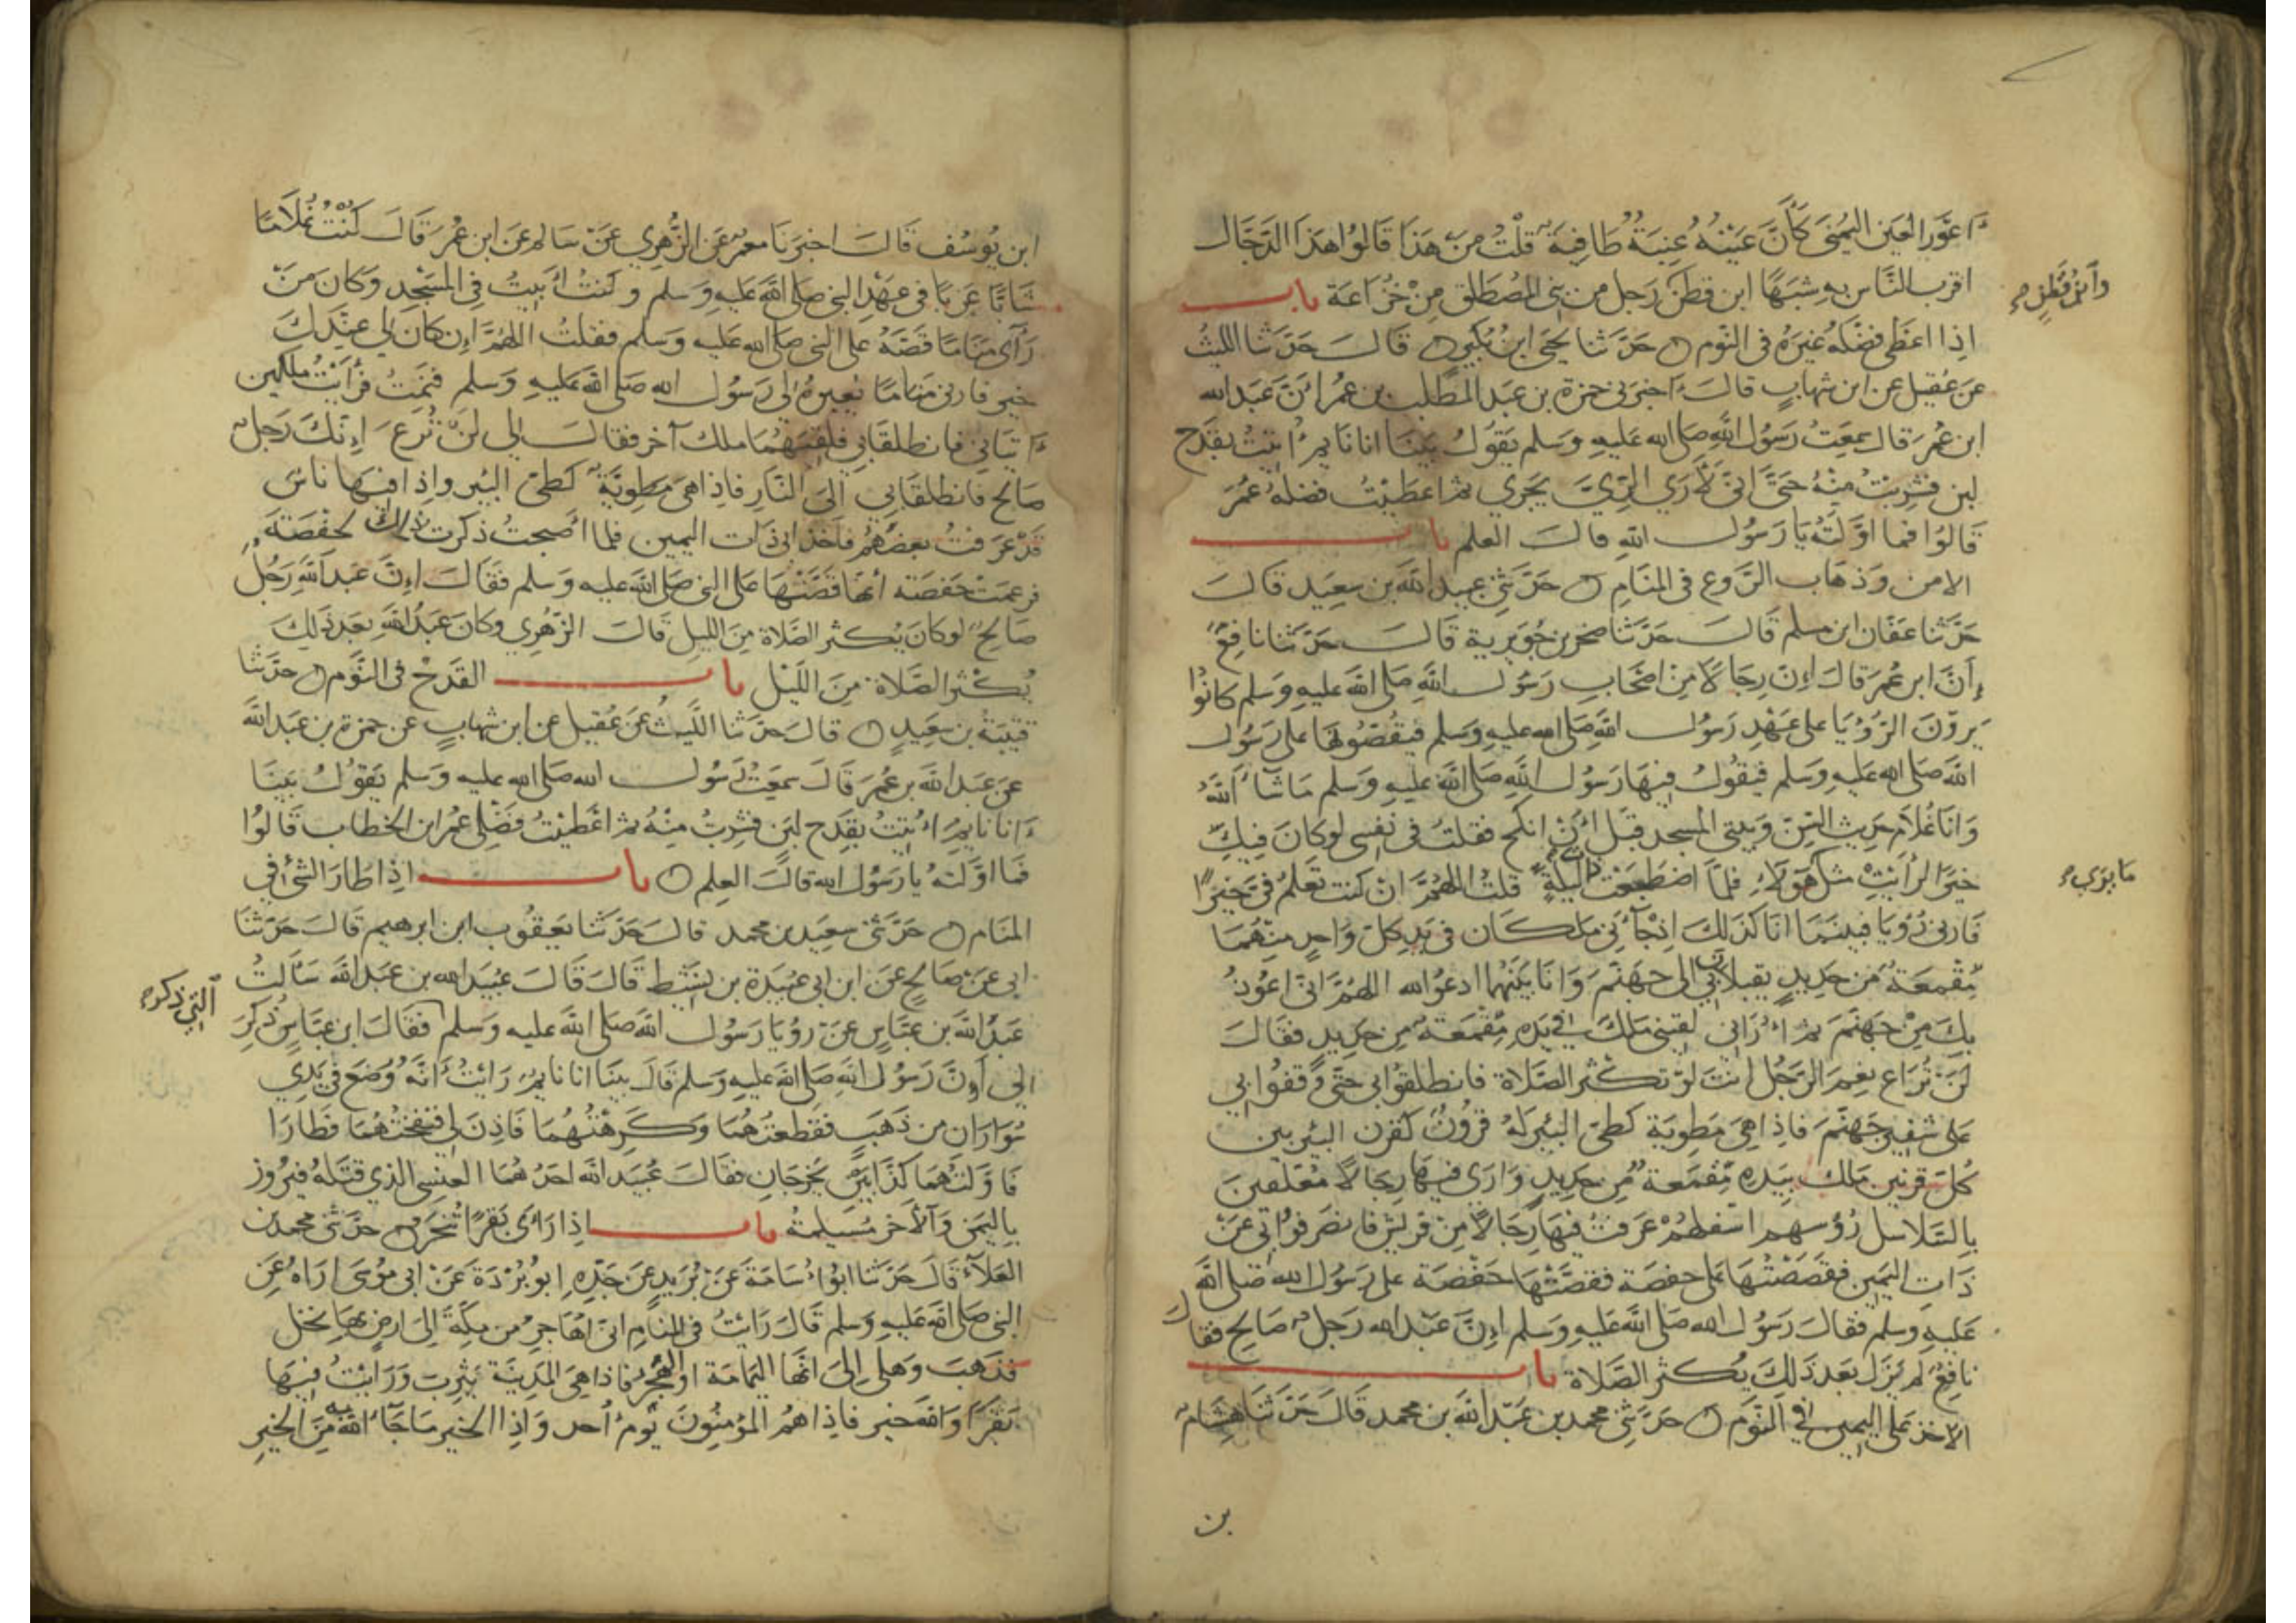 اعور العين اليمنى كأن عينه عنبة طافية قلت من هذا قالوا هذا الدجال
اقرب الناس به شبها ابن قطن رجل من بنى المصطلق من خزاعة باب
وابن قطن
اذا اعطى فضله غيره فى النوم حدثنا يحيى ابن بكير قال حدثنا الليث
عن عقيل عن ابن شهاب قال اخبرنى حمزة بن عبد المطلب بن عمر ان عبد الله
ابن عمر قال سمعت رسول الله صلى الله عليه وسلم يقول بينا انا نايم اتيت بقدح
لبن فشربت منه حتى انى لارى الرى يجرى ثم اعطيت فضله عمر
قالوا فما اولته يا رسول الله قال العلم باب
الامن وذهاب الروع فى المنام حدثنى عبيد الله بن سعيد قال
حدثنا عفان ابن مسلم قال حدثنا صخر بن جويرية قال حدثنا نافع
أن ابن عمر قال إن رجالا من اصحاب رسول الله صلى الله عليه وسلم كانوا
يرون الرؤيا على عهد رسول الله صلى الله عليه وسلم فيقصونها على رسول
الله صلى الله عليه وسلم فيقول فيها رسول الله صلى الله عليه وسلم ما شاء الله
وانا غلام حديث السن وبيتى المسجد قبل أن انكح فقلت فى نفسى لو كان فيك
خيرا لرأيت مثل هؤلاء فلما اضطجعت ليلة قلت اللهم ان كنت تعلم فى خيرا
ما يرى
فارنى رؤيا فبينما انا كذلك اذ جآءنى ملكان فى يد كل واحد منهما
مقمعة من حديد يقبلان بى الى جهنم وانا بينهما ادعو الله اللهم انى اعوذ
بك من جهنم ثم أرانى لقينى ملك فى يده مقمعة من حديد فقال
لن تراع نعم الرجل انت لو تكثر الصلاة فانطلقوا بى حتى وقفوا بى
على شفير جهنم فاذا هى مطوية كطى البئر له قرون كقرن البئر بين
كل قرنين ملك بيده مقمعة من حديد وارى فيها رجالا معلقين
بالسلاسل رؤسهم اسفلهم عرفت فيها رجالا من قريش فانصرفوا بى عن
ذات اليمين فقصصتها على حفصة فقصتها حفصة على رسول الله صلى الله
عليه وسلم فقال رسول الله صلى الله عليه وسلم إن عبد الله رجل صالح فقال
نافع لم يزل بعد ذلك يكثر الصلاة باب
الاخذ على اليمين فى النوم حدثنى محمد بن عبد الله بن محمد قال حدثنا هشام
بن
ابن يوسف قال اخبرنا معمر عن الزهرى عن سالم عن ابن عمر قال كنت غلاما
شابا عزبا فى عهد النبى صلى الله عليه وسلم وكنت أبيت فى المسجد وكان من
رأى مناما قصه على النبى صلى الله عليه وسلم فقلت اللهم إن كان لى عندك
خير فارنى مناما يعبره لى رسول الله صلى الله عليه وسلم فنمت فرأيت ملكين
اتيانى فانطلقا بى فلقيهما ملك آخر فقال لى لن ترع إنك رجل
صالح فانطلقا بى الى النار فاذا هى مطوية كطى البئر واذا فيها ناس
قد عرفت بعضهم فاخذا بى ذات اليمين فلما أصبحت ذكرت ذلك لحفصة
فزعمت حفصة أنها قصتها على النبى صلى الله عليه وسلم فقال إن عبد الله رجل
صالح لو كان يكثر الصلاة من الليل قال الزهرى وكان عبد الله بعد ذلك
يكثر الصلاة من الليل باب القدح فى النوم حدثنا
قتيبة بن سعيد قال حدثنا الليث عن عقيل عن ابن شهاب عن حمزة بن عبد الله
عن عبد الله بن عمر قال سمعت رسول الله صلى الله عليه وسلم يقول بينا
انا نايم أتيت بقدح لبن فشربت منه ثم اعطيت فضلى عمر ابن الخطاب قالوا
فما اولته يا رسول الله قال العلم باب اذا طار الشئ فى
المنام حدثنى سعيد بن محمد قال حدثنا يعقوب ابن ابرهيم قال حدثنا
ابى عن صالح عن ابن ابى عبيدة بن نشيط قال قال عبيد الله بن عبد الله سألت
عبد الله بن عباس عن رؤيا رسول الله صلى الله عليه وسلم فقال ابن عباس ذكر
التى ذكر
لى أن رسول الله صلى الله عليه وسلم قال بينا انا نايم رايت انه وضع فى يدى
سواران من ذهب فقطعتهما وكرهتهما فاذن لى فنفختهما فطارا
فاولتهما كذابين يخرجان فقال عبيد الله احدهما العنسى الذى قتله فيروز
باليمن والآخر مسيلمة باب اذا رأى بقرا تنحر حدثنى محمد بن
العلاء قال حدثنا ابو أسامة عن بريد عن جده ابو بردة عن ابى موسى اراه عن
النبى صلى الله عليه وسلم قال رايت فى المنام انى اهاجر من مكة الى ارض بها نخل
فذهب وهلى الى انها اليمامة او الهجر فاذا هى المدينة يثرب ورايت فيها
بقرا والله خير فاذا هم المؤمنون يوم أحد واذا الخير ما جآء الله به من الخير